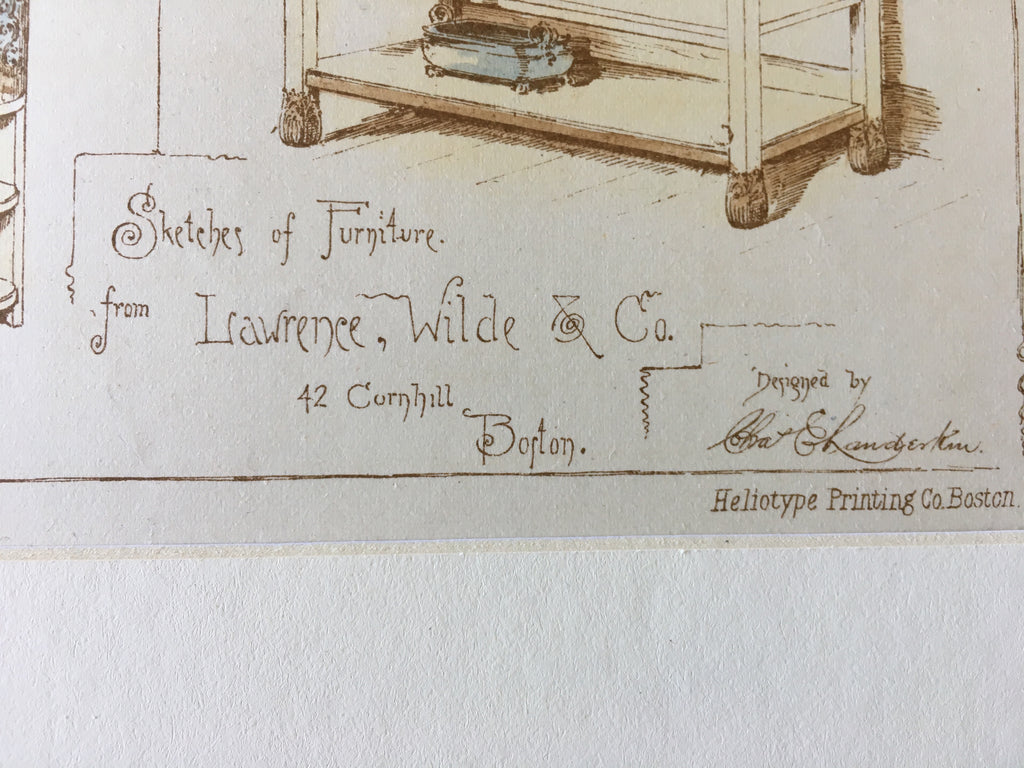 Sketches of Furniture.
from Lawrence, Wilde & Co.
42 Cornhill
Boston.
Designed by
Chas E
Heliotype Printing Co. Boston.